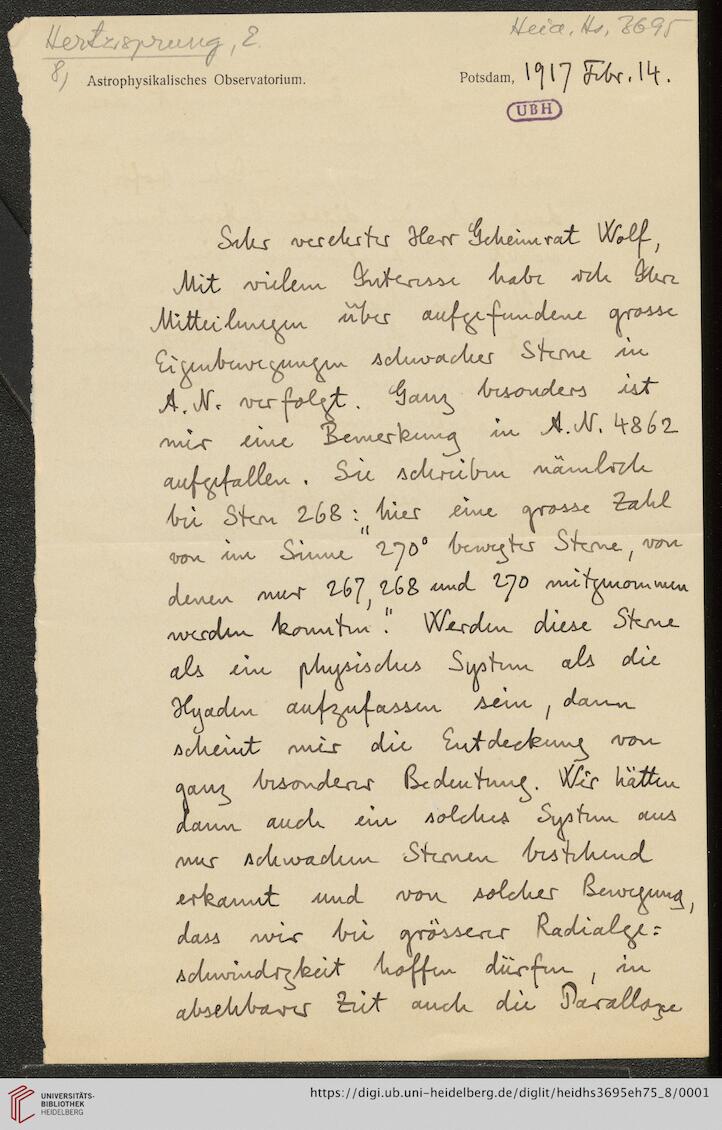 Hertzsprung, E.
Heid. Hs. 3695
8)
Astrophysikalisches Observatorium.
Potsdam, 1917 Febr. 14.
UBH
Sehr verehrter Herr Geheimrat Wolf,
Mit vielem Interesse habe ich Ihre
Mitteilungen über aufgefundene grosse
Eigenbewegungen schwacher Sterne in
A. N. verfolgt. Ganz besonders ist
mir eine Bemerkung in A. N. 4862
aufgefallen. Sie schreiben nämlich
bei Stern 268: hier eine grosse Zahl
von im Sinne "270° bewegter Sterne, von
denen nur 267, 268 und 270 mitgenommen
werden konnten." Werden diese Sterne
als ein physisches System als die
Hyaden aufzufassen sein, dann
scheint mir die Entdeckung von
ganz besonderer Bedeutung. Wir hätten
dann auch ein solches System aus
nur schwachen Sternen bestehend
erkannt und von solcher Bewegung,
dass wir bei grösserer Radialge=
schwindigkeit hoffen dürfen, in
absehbarer Zeit auch die Parallaxe
UNIVERSITÄTS-
BIBLIOTHEK
HEIDELBERG
https://digi.ub.uni-heidelberg.de/diglit/heidhs3695eh75_8/0001